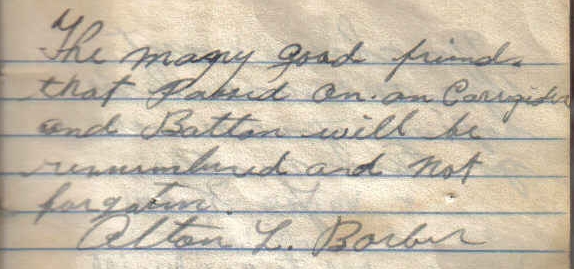 The many good friends
that Passed on. on Corrigidor
and Battan will be
remembered and not
forgotten.
Alton L. Barber